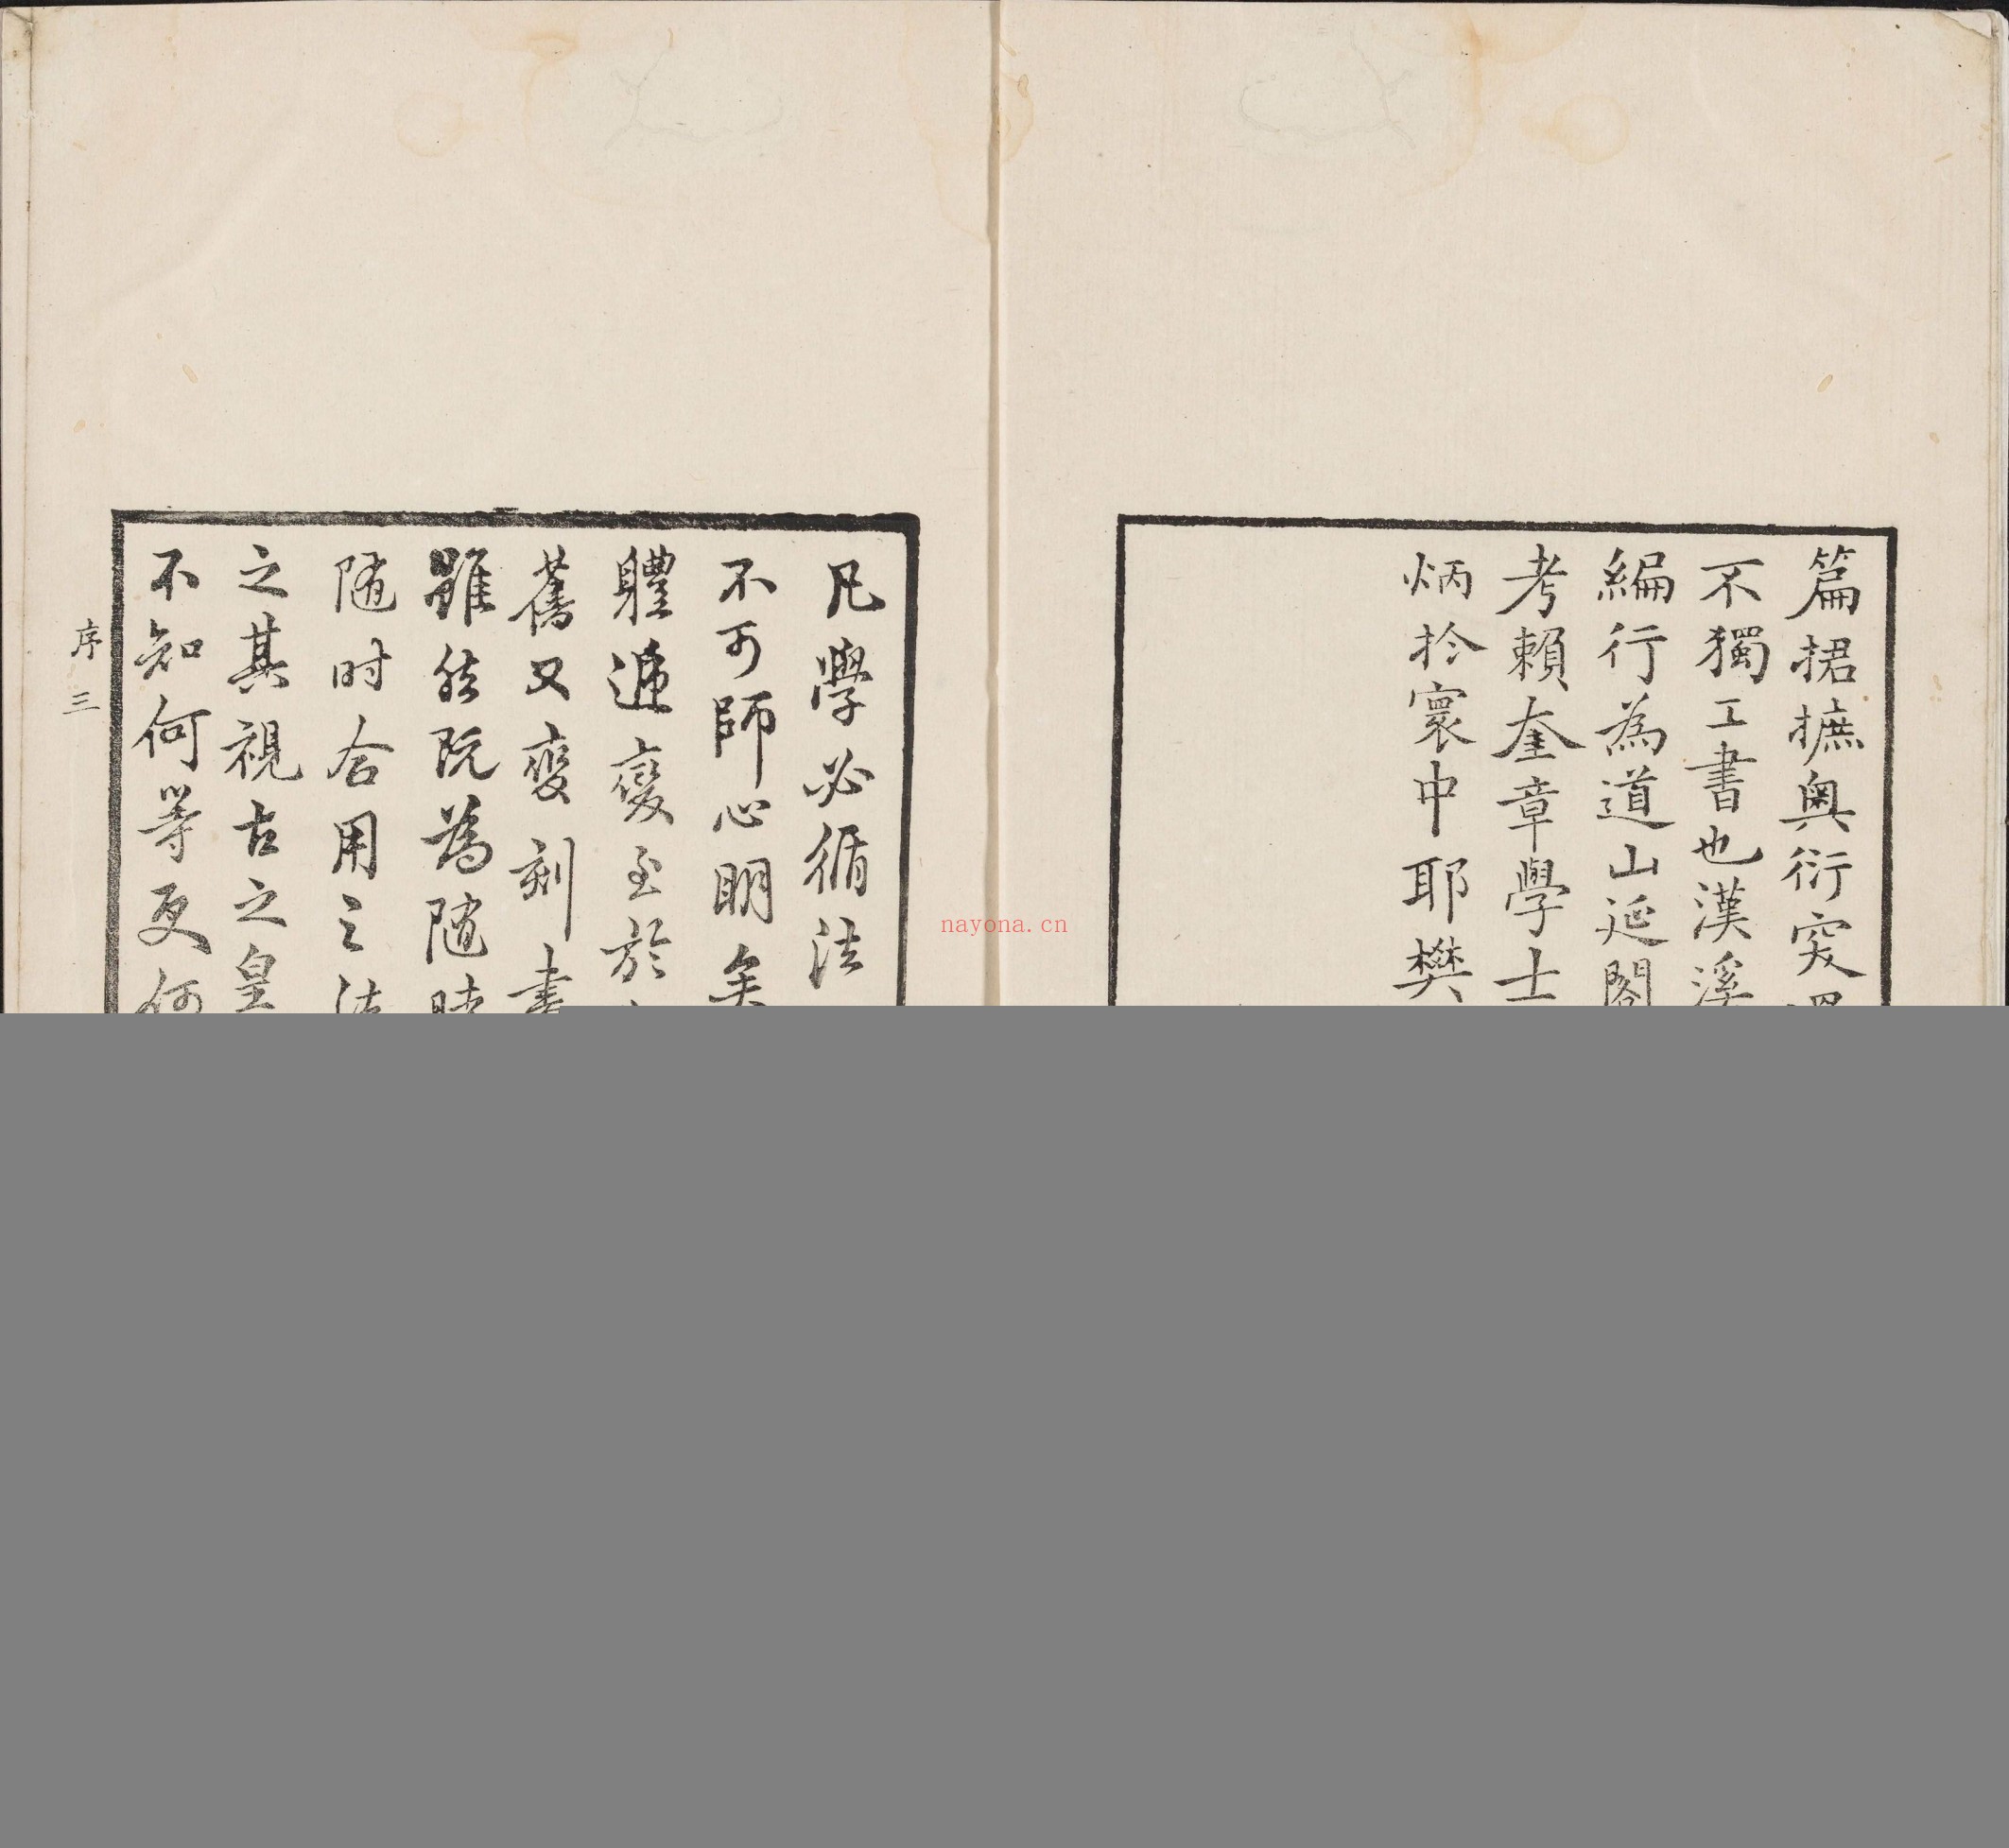 篇捃摭奧衍突
不獨工書也漢溪
編行為道山延閣
考賴奎章學士
炳扵寰中耶樊
凡學必循法
不可師心明矣
軆遞變至於
舊又變刻書
雖然既為隨時
随时合用之法
之其視古之皇
不知何等更何
序三
nayona.cn